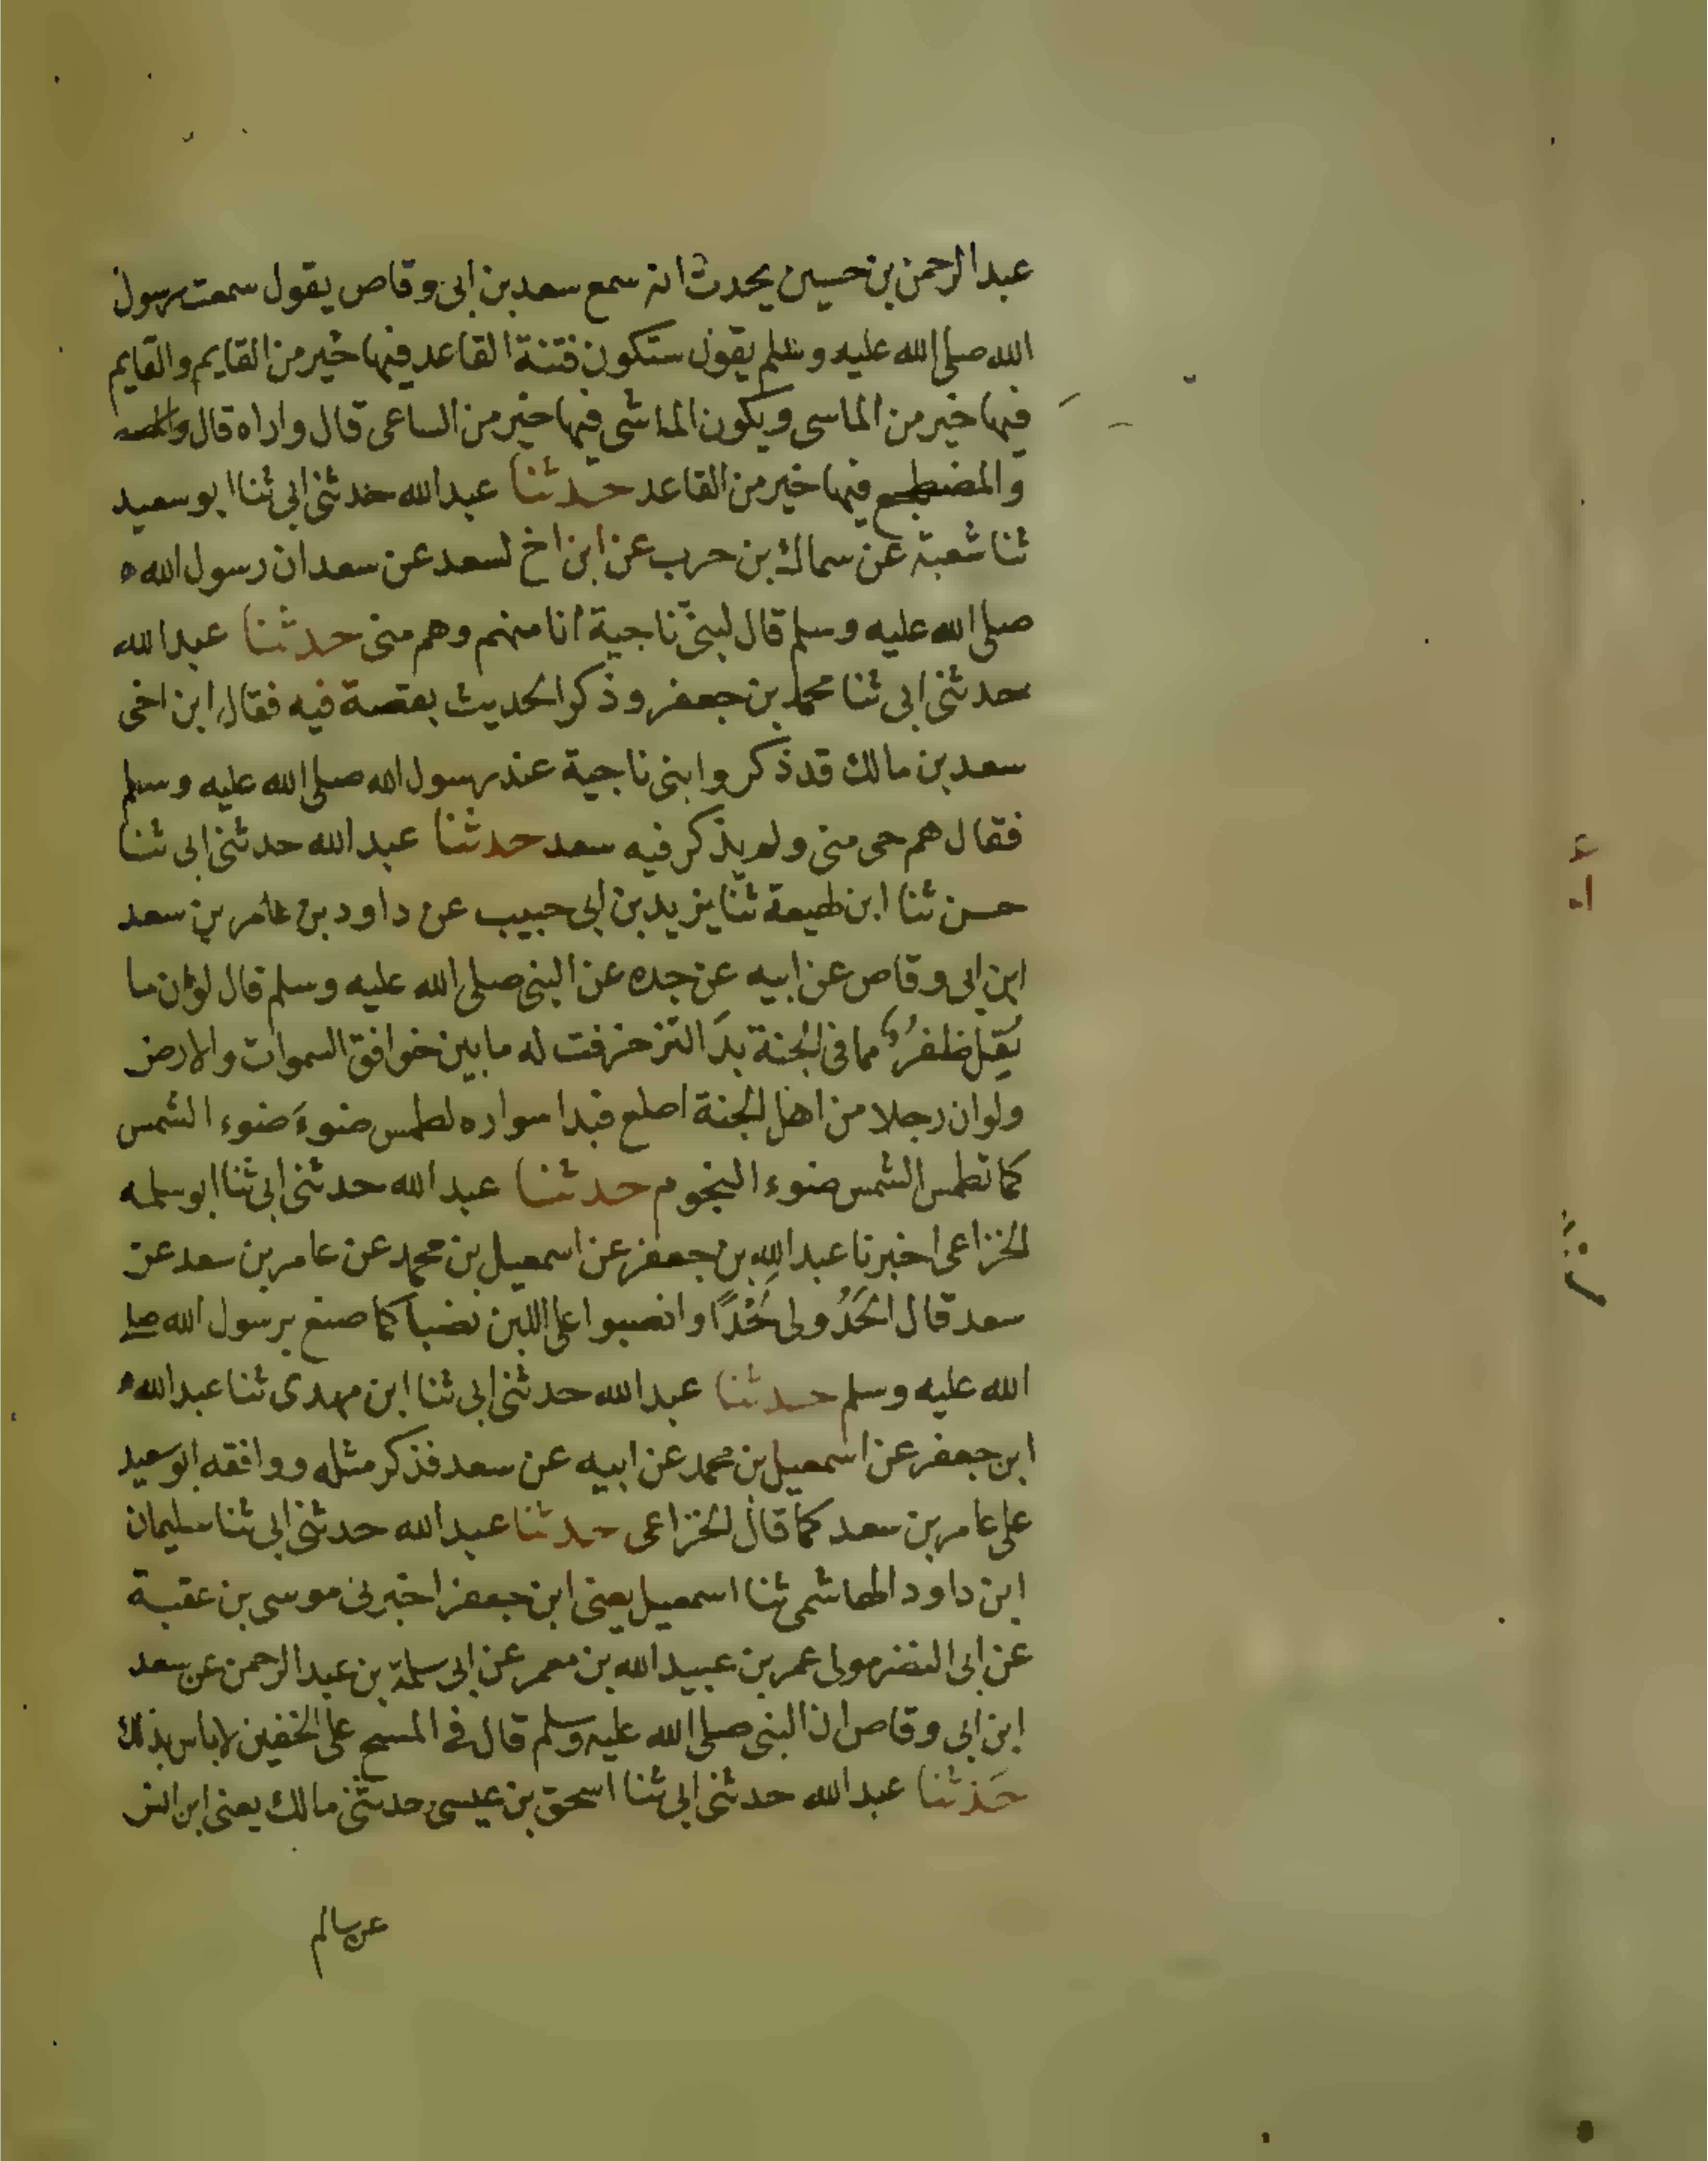 عبدالرحمن بن حسين يحدث انه سمع سعد بن ابى وقاص يقول سمعت رسول
الله صلى الله عليه وسلم يقول ستكون فتنة القاعد فيها خير من القايم والقايم
فيها خير من الماسى ويكون الماشى فيها خير من الساعى قال واراه قال
والمضطجع فيها خير من القاعد حدثنا عبدالله حدثنى ابى ثنا ابو سعيد
ثنا شعبة عن سماك بن حرب عن ابن اخ لسعد عن سعد ان رسول الله
صلى الله عليه وسلم قال لبنى ناجية انا منهم وهم منى حدثنا عبدالله
حدثنى ابى ثنا محمد بن جعفر وذكر الحديث بقصة فيه فقال ابن اخى
سعد بن مالك قد ذكروا بنى ناجية عند رسول الله صلى الله عليه وسلم
فقال هم حى منى ولم يذكر فيه سعد حدثنا عبدالله حدثنى ابى ثنا
حسن ثنا ابن لهيعة ثنا يزيد بن ابى حبيب عن داود بن عامر بن سعد
ابن ابى وقاص عن ابيه عن جده عن النبى صلى الله عليه وسلم قال لو ان ما
يقل ظفر مما فى الجنة بدا لتزخرفت له ما بين خوافق السموات والارض
ولو ان رجلا من اهل الجنة اطلع فبدا سواره لطمس ضوءَ ضوء الشمس
كما تطمس الشمس ضوء النجوم حدثنا عبدالله حدثنى ابى ثنا ابو سلمه
الخزاعى اخبرنا عبدالله بن جعفر عن اسمعيل بن محمد عن عامر بن سعد عن
سعد قال الحَدُولى لَحْدًا وانصبوا على اللبن نصبا كما صنع برسول الله صلى
الله عليه وسلم حدثنا عبدالله حدثنى ابى ثنا ابن مهدى ثنا عبدالله
ابن جعفر عن اسمعيل بن محمد عن ابيه عن سعد فذكر مثله ووافقه ابوسعيد
على عامر بن سعد كما قال الخزاعى حدثنا عبدالله حدثنى ابى ثنا سليمان
ابن داود الهاشمى ثنا اسمعيل يعنى ابن جعفر اخبرنى موسى بن عقبة
عن ابى النضر مولى عمر بن عبيدالله بن معمر عن ابى سلمة بن عبدالرحمن عن سعد
ابن ابى وقاص ان النبى صلى الله عليه وسلم قال فى المسح على الخفين لا باس بذلك
حدثنا عبدالله حدثنى ابى ثنا اسحق بن عيسى حدثنى مالك يعنى ابن انس
عن سالم